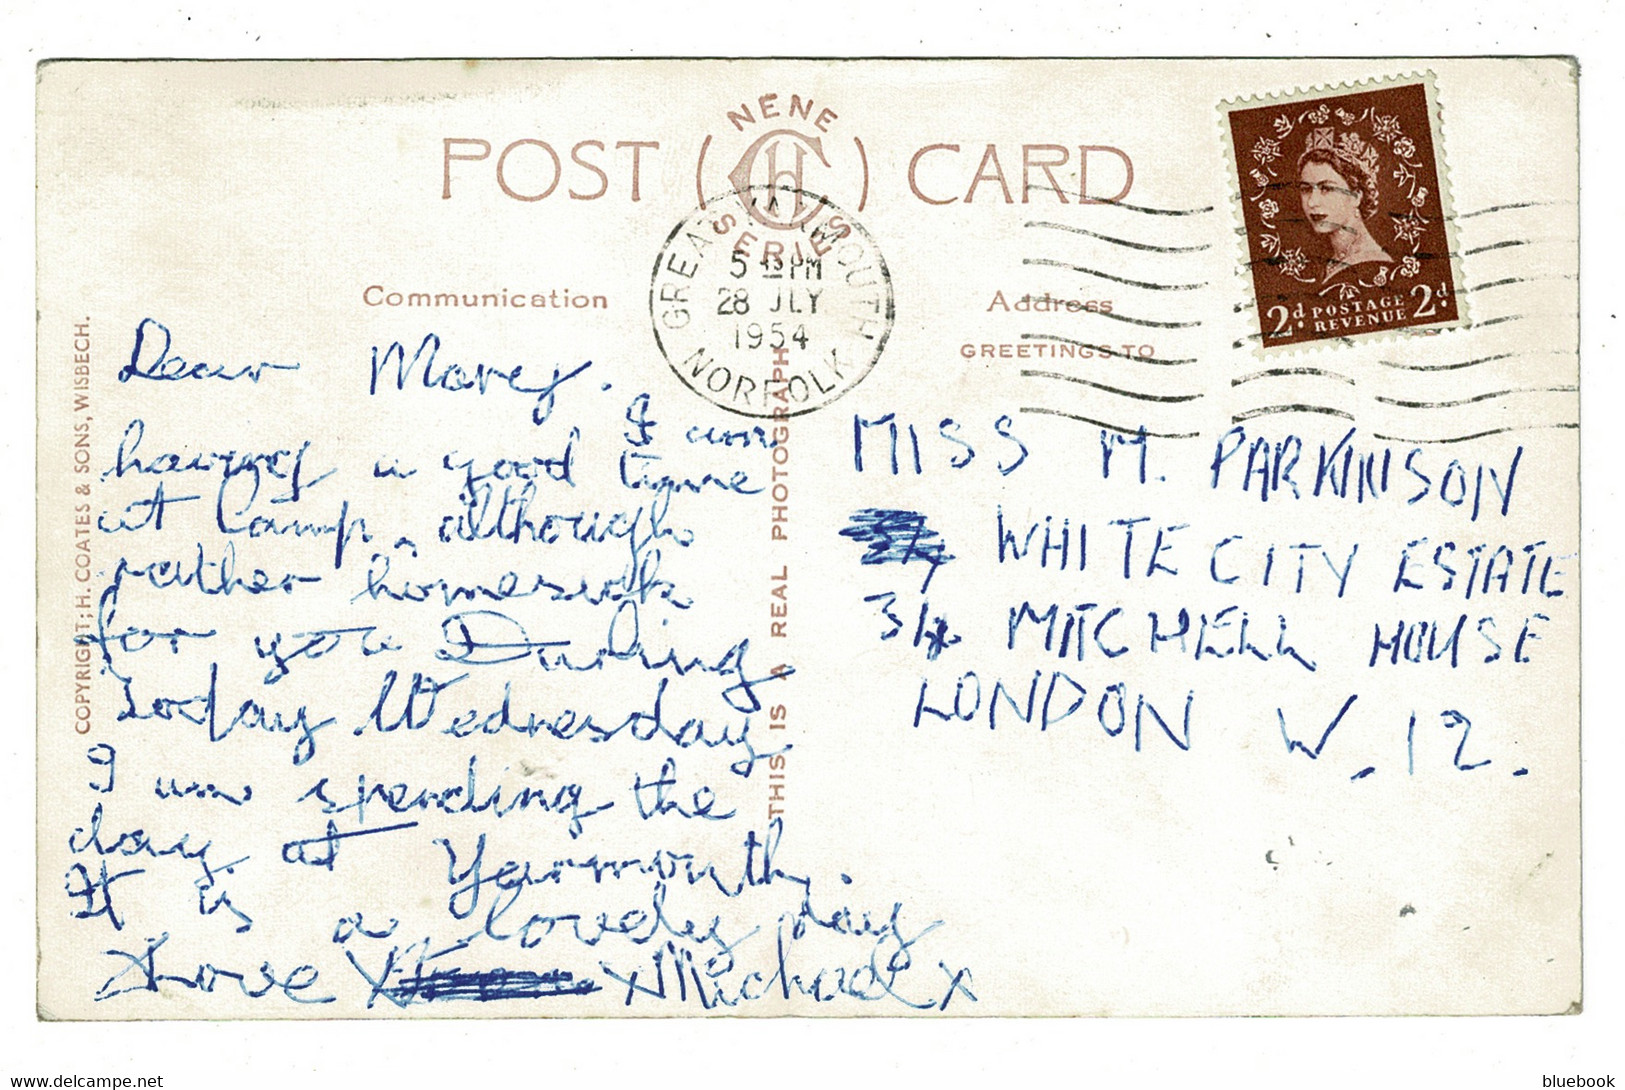 NENE
POST CARD
SERIES
GREAT YARMOUTH
5 15 PM
28 JLY
1954
NORFOLK
2d POSTAGE REVENUE 2d
Communication
Address
GREETINGS TO
COPYRIGHT: H. COATES & SONS, WISBECH.
THIS IS A REAL PHOTOGRAPH
Dear Mary.
I am
having a good time
at Camp, although
rather homesick
for you Darling.
Today Wednesday
I am spending the
day at Yarmouth.
It is a lovely day
Love X X Michael X
MISS M. PARKINSON
WHITE CITY ESTATE
34 MITCHELL HOUSE
LONDON W.12.
bluebook